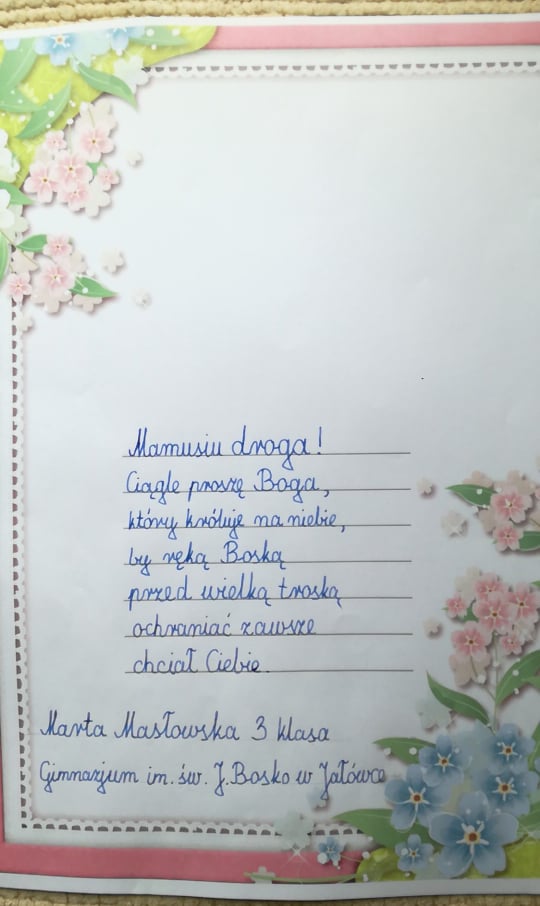 Mamusiu droga!
Ciągle proszę Boga,
który króluje na niebie,
by ręką Boską
przed wielką troską
ochraniać zawsze
chciał Ciebie.
Marta Masłowska 3 klasa
Gimnazjum im. św. J. Bosko w Jałówce